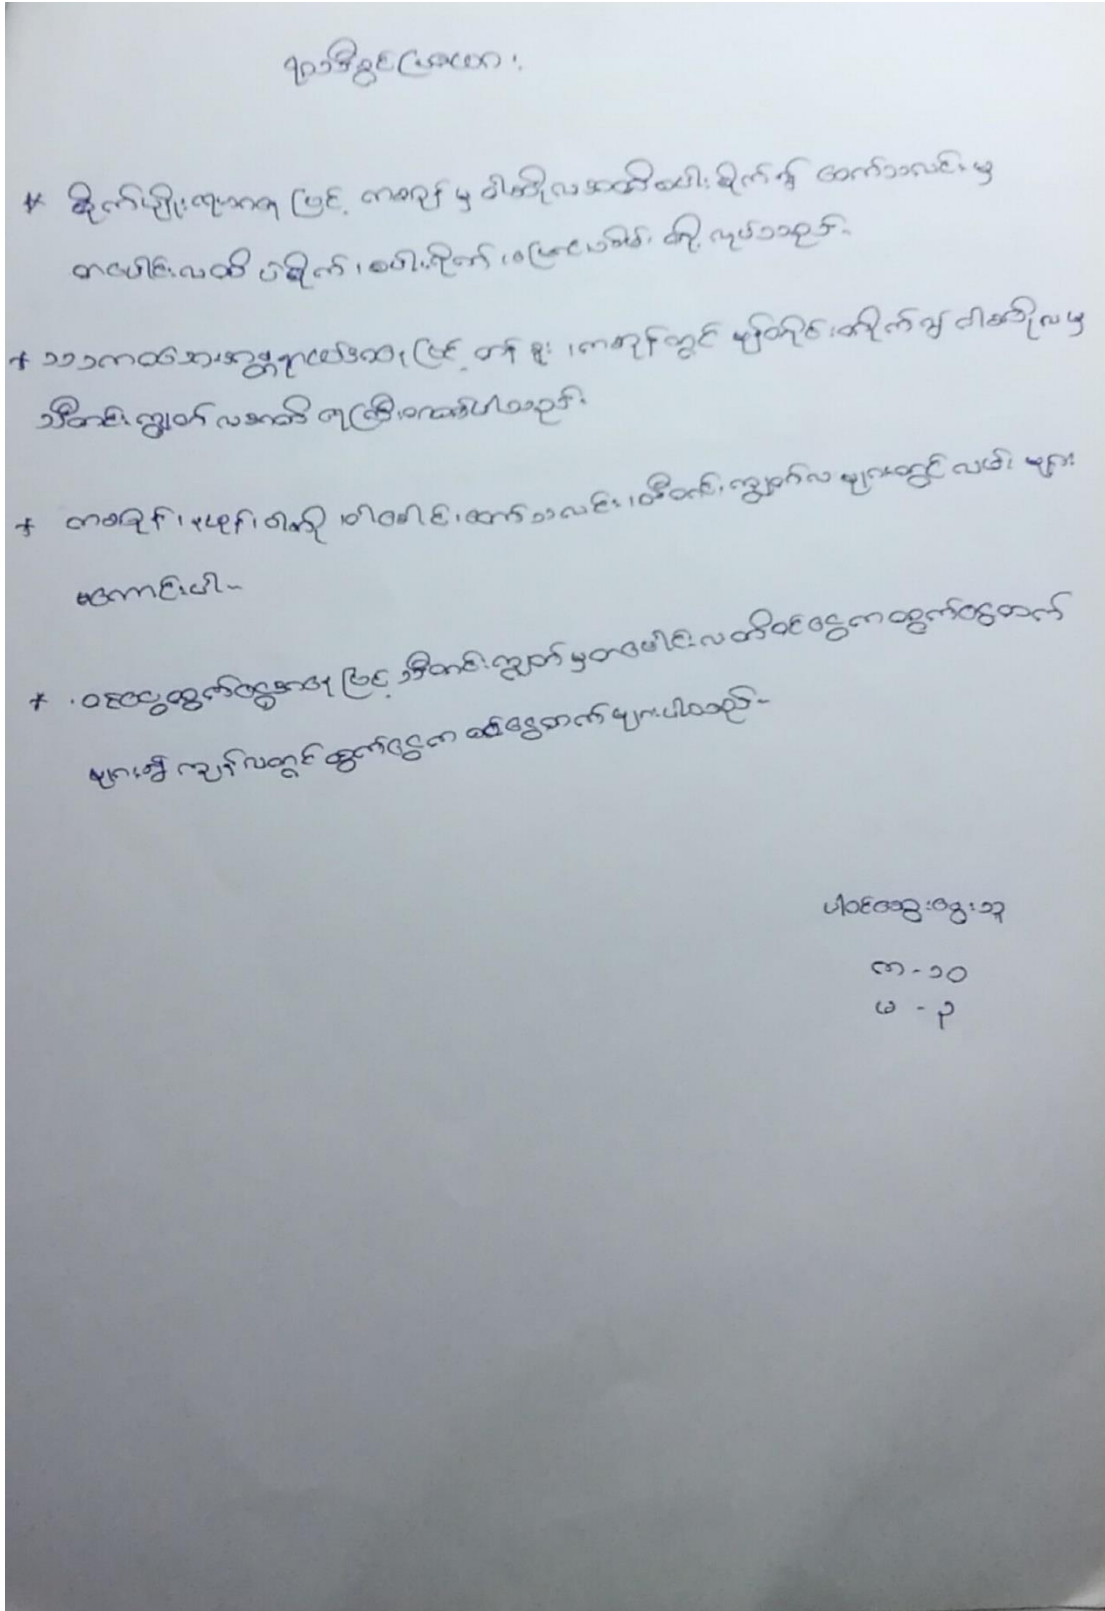 ရာသီခွင်ပြဇယား
* စိုက်ပျိုးရေးအရ ဖြင့် ကဆုန် မှ ဝါဆိုလအထိစပါးစိုက်၍ တော်သလင်းမှ
တပေါင်းလထိ ပဲစိုက်၊ စပါးစိုက်၊ တို့ လုပ်သည်။
* သဘာဝဘေးအန္တရာယ်အရ ဖြင့် တန်ခူး၊ ကဆုန်တွင် မုန်တိုင်းတိုက်၍ ဝါဆိုလမှ
သီတင်းကျွတ်လအထိ ရေကြီးတတ်ပါသည်။
* ကဆုန်၊ နယုန်၊ ဝါဆို၊ ဝါခေါင်၊ တော်သလင်း၊ သီတင်းကျွတ်လ များတွင် လမ်း များ
မကောင်းပါ။
* ဝင်ငွေထွက်ငွေအရ ဖြင့် သီတင်းကျွတ် မှ တပေါင်းလထိဝင်ငွေက ထွက်ငွေထက်
များ၍ ကျန်လတွင် ထွက်ငွေက ဝင်ငွေထက် များပါသည်။
ပါဝင်ဆွေးနွေးသူ
ကျ - ၁၀
မ - ၃